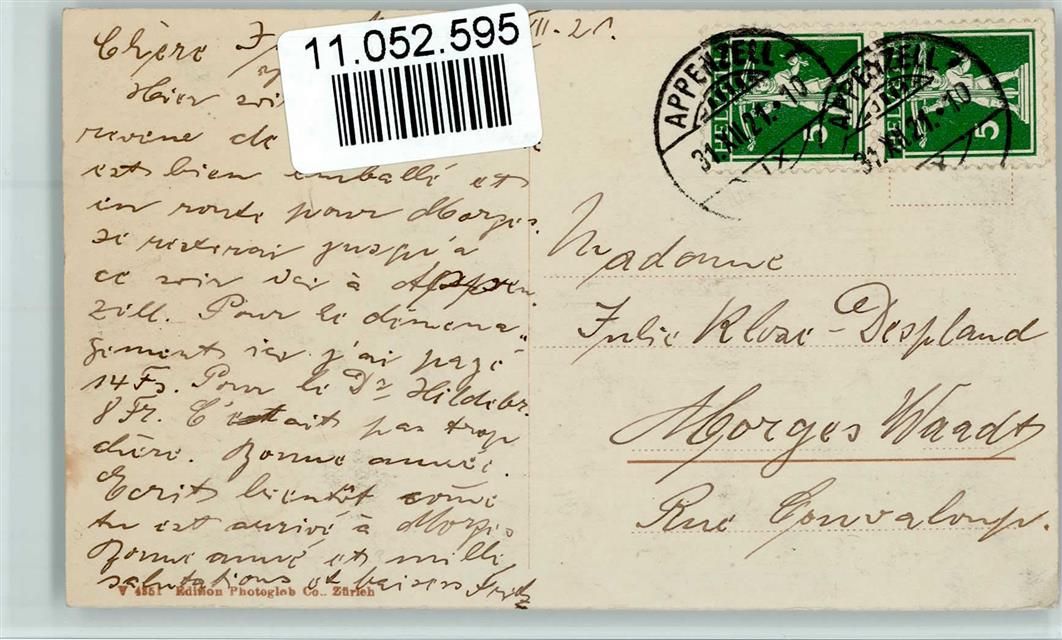 11.052.595
XII. 21.
Chère
Hier soir
revenu de
est bien emballé et
en route pour Morges.
Je resterai jusqu'à
ce soir ici à Appen
zell. Pour le déména„
gement ici j'ai payé
14 Fr. Pour le Dr Hildebr.
8 Fr. C'était pas trop
chère. Bonne année.
Ecrit bientôt comme
tu est arrivé à Morges
Bonne année et mille
salutations et baisers Fritz
V 4551 Edition Photoglob Co., Zürich
APPENZELL
31.XII.21.-10
HELVETIA
5
APPENZELL
31.XII.21.-10
HELVETIA
5
Madame
Julie Klose-Despland
Morges Waadt
Rue Couvaloup.